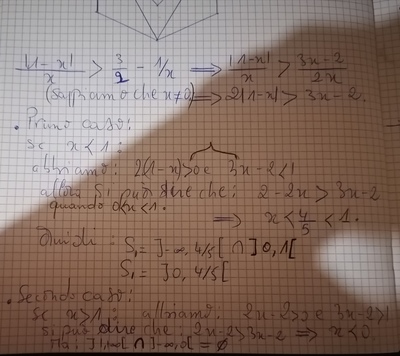 |1-x|/x > 3/2 - 1/x ⟹ |1-x|/x > 3x-2/2x
(Sappiamo che x≠0) ⟹ 2|1-x| > 3x-2.
. Primo caso:
Se x<1:
abbiamo: 2(1-x)>0 e 3x-2<1
allora si può dire che: 2-2x > 3x-2
quando 0<x<1. ⟹ x < 4/5 < 1.
Quindi: S₁ = ]-∞, 4/5[ ∩ ]0, 1[
S₁ = ]0, 4/5[
. Secondo caso:
Se x>1: abbiamo: 2x-2>0 e 3x-2>1
Si può dire che: 2x-2>3x-2 ⟹ x<0
Ma: ]1,+∞[ ∩ ]-∞,0[ = ∅